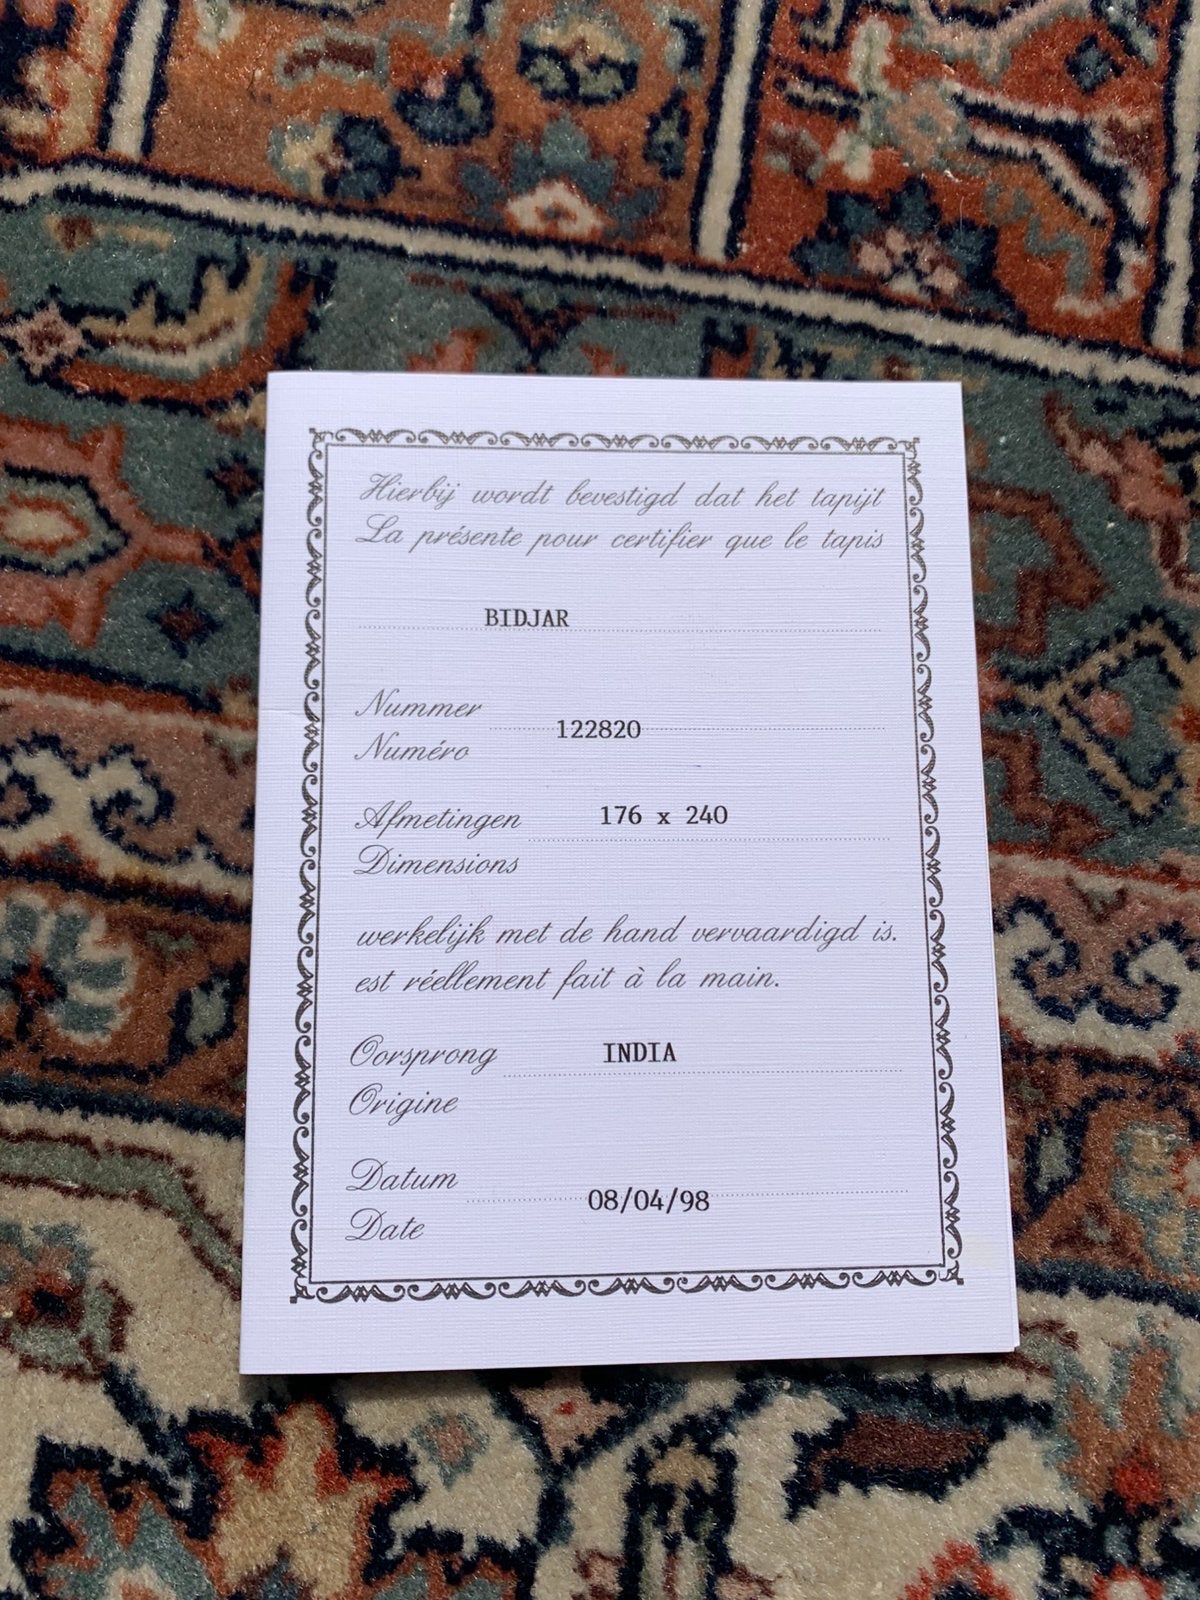 Hierbij wordt bevestigd dat het tapijt
La présente pour certifier que le tapis
BIDJAR
Nummer
122820
Numéro
Afmetingen 176 x 240
Dimensions
werkelijk met de hand vervaardigd is.
est réellement fait à la main.
Oorsprong INDIA
Origine
Datum
08/04/98
Date